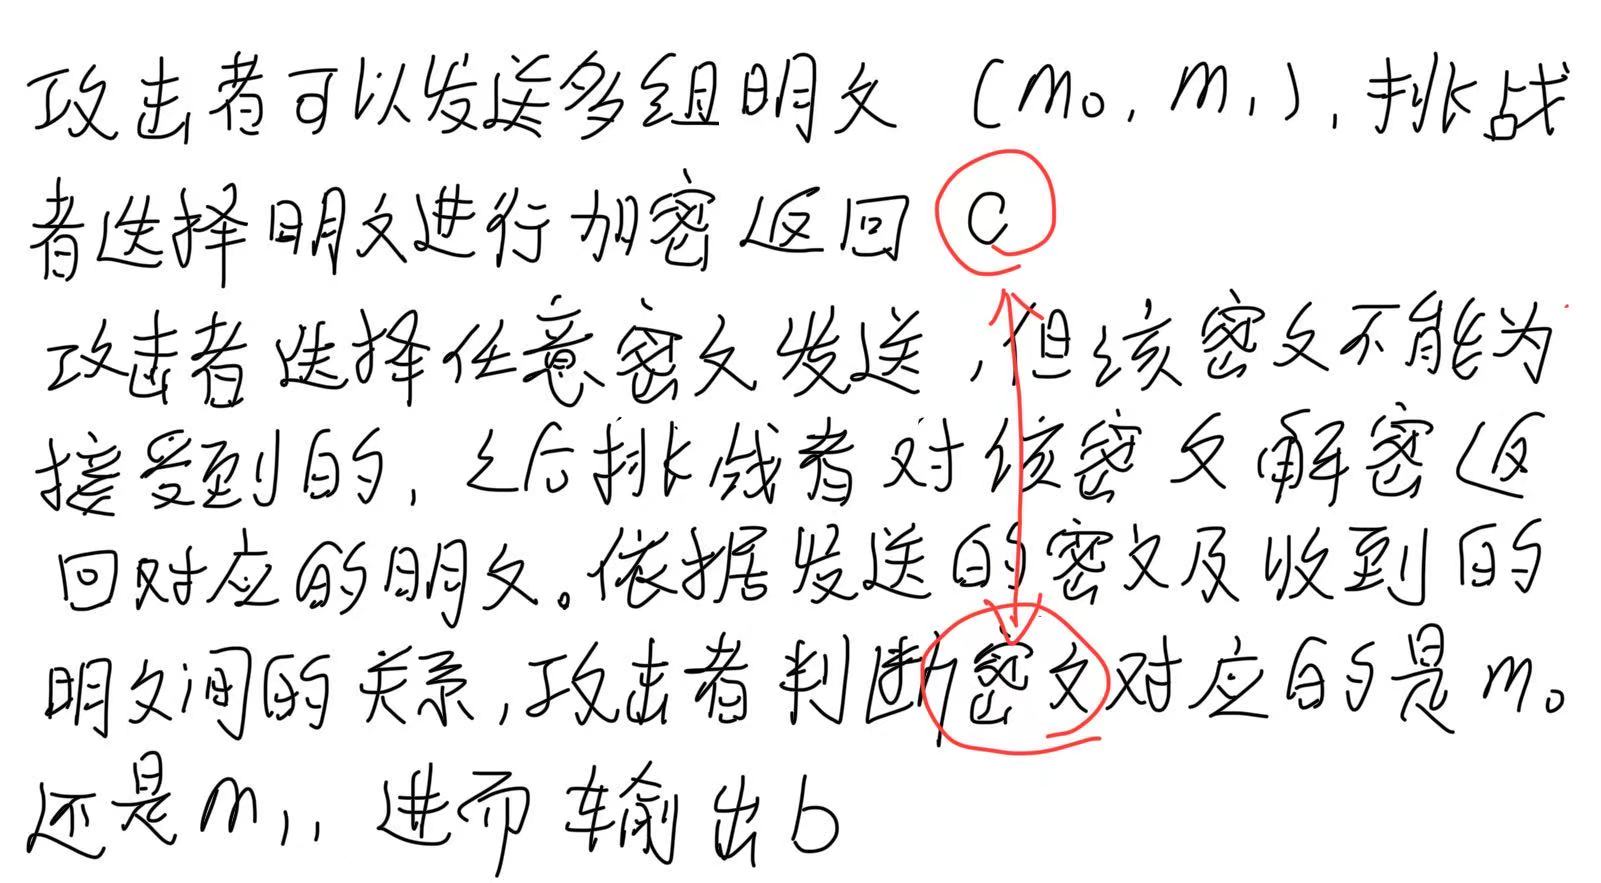 攻击者可以发送多组明文 (m₀, m₁), 挑战
者选择明文进行加密返回 C
攻击者选择任意密文发送, 但该密文不能为
接受到的, 之后挑战者对该密文解密返
回对应的明文。依据发送的密文及收到的
明文间的关系, 攻击者判断密文对应的是 m₀
还是 m₁, 进而输出 b